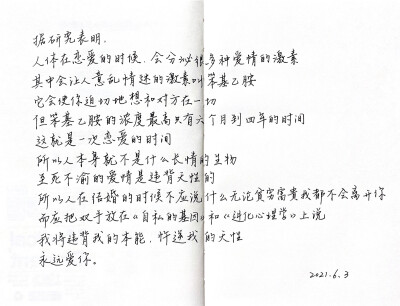 据研究表明.
人体在恋爱的时候.会分泌很多种爱情的激素
其中会让人意乱情迷的激素叫苯基乙胺
它会使你迫切地想和对方在一切
但苯基乙胺的浓度最高只有六个月到四年的时间
这就是一次恋爱的时间
所以人本身就不是什么长情的生物
至死不渝的爱情是违背天性的
所以人在结婚的时候不应说什么无论贫穷富贵我都不会离开你
而应把双手放在《自私的基因》和《进化心理学》上说
我将违背我的本能.忤逆我的天性
永远爱你。
2021.6.3